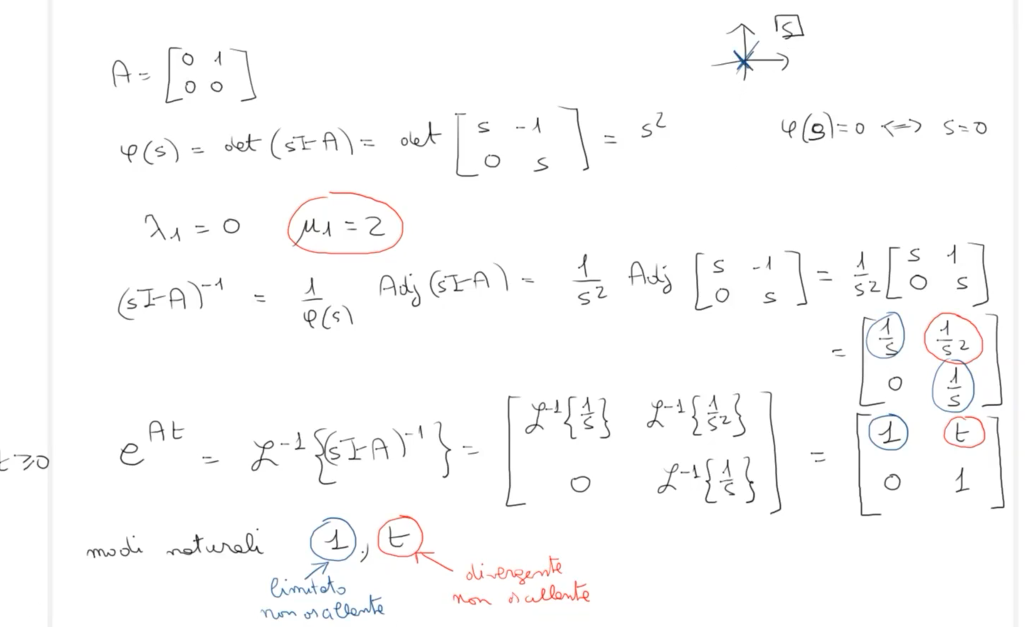 A = [0 1; 0 0]
[S]
φ(s) = det (sI-A) = det [s -1; 0 s] = s²
φ(s)=0 <=> s=0
λ₁ = 0 μ₁ = 2
(sI-A)⁻¹ = 1/φ(s) Adj (sI-A) = 1/s² Adj [s -1; 0 s] = 1/s² [s 1; 0 s]
= [1/s 1/s²; 0 1/s]
t≥0 e^{At} = ℒ⁻¹{(sI-A)⁻¹} = [ℒ⁻¹{1/s} ℒ⁻¹{1/s²}; 0 ℒ⁻¹{1/s}] = [1 t; 0 1]
modi naturali 1, t
limitato
non oscillante
divergente
non oscillante